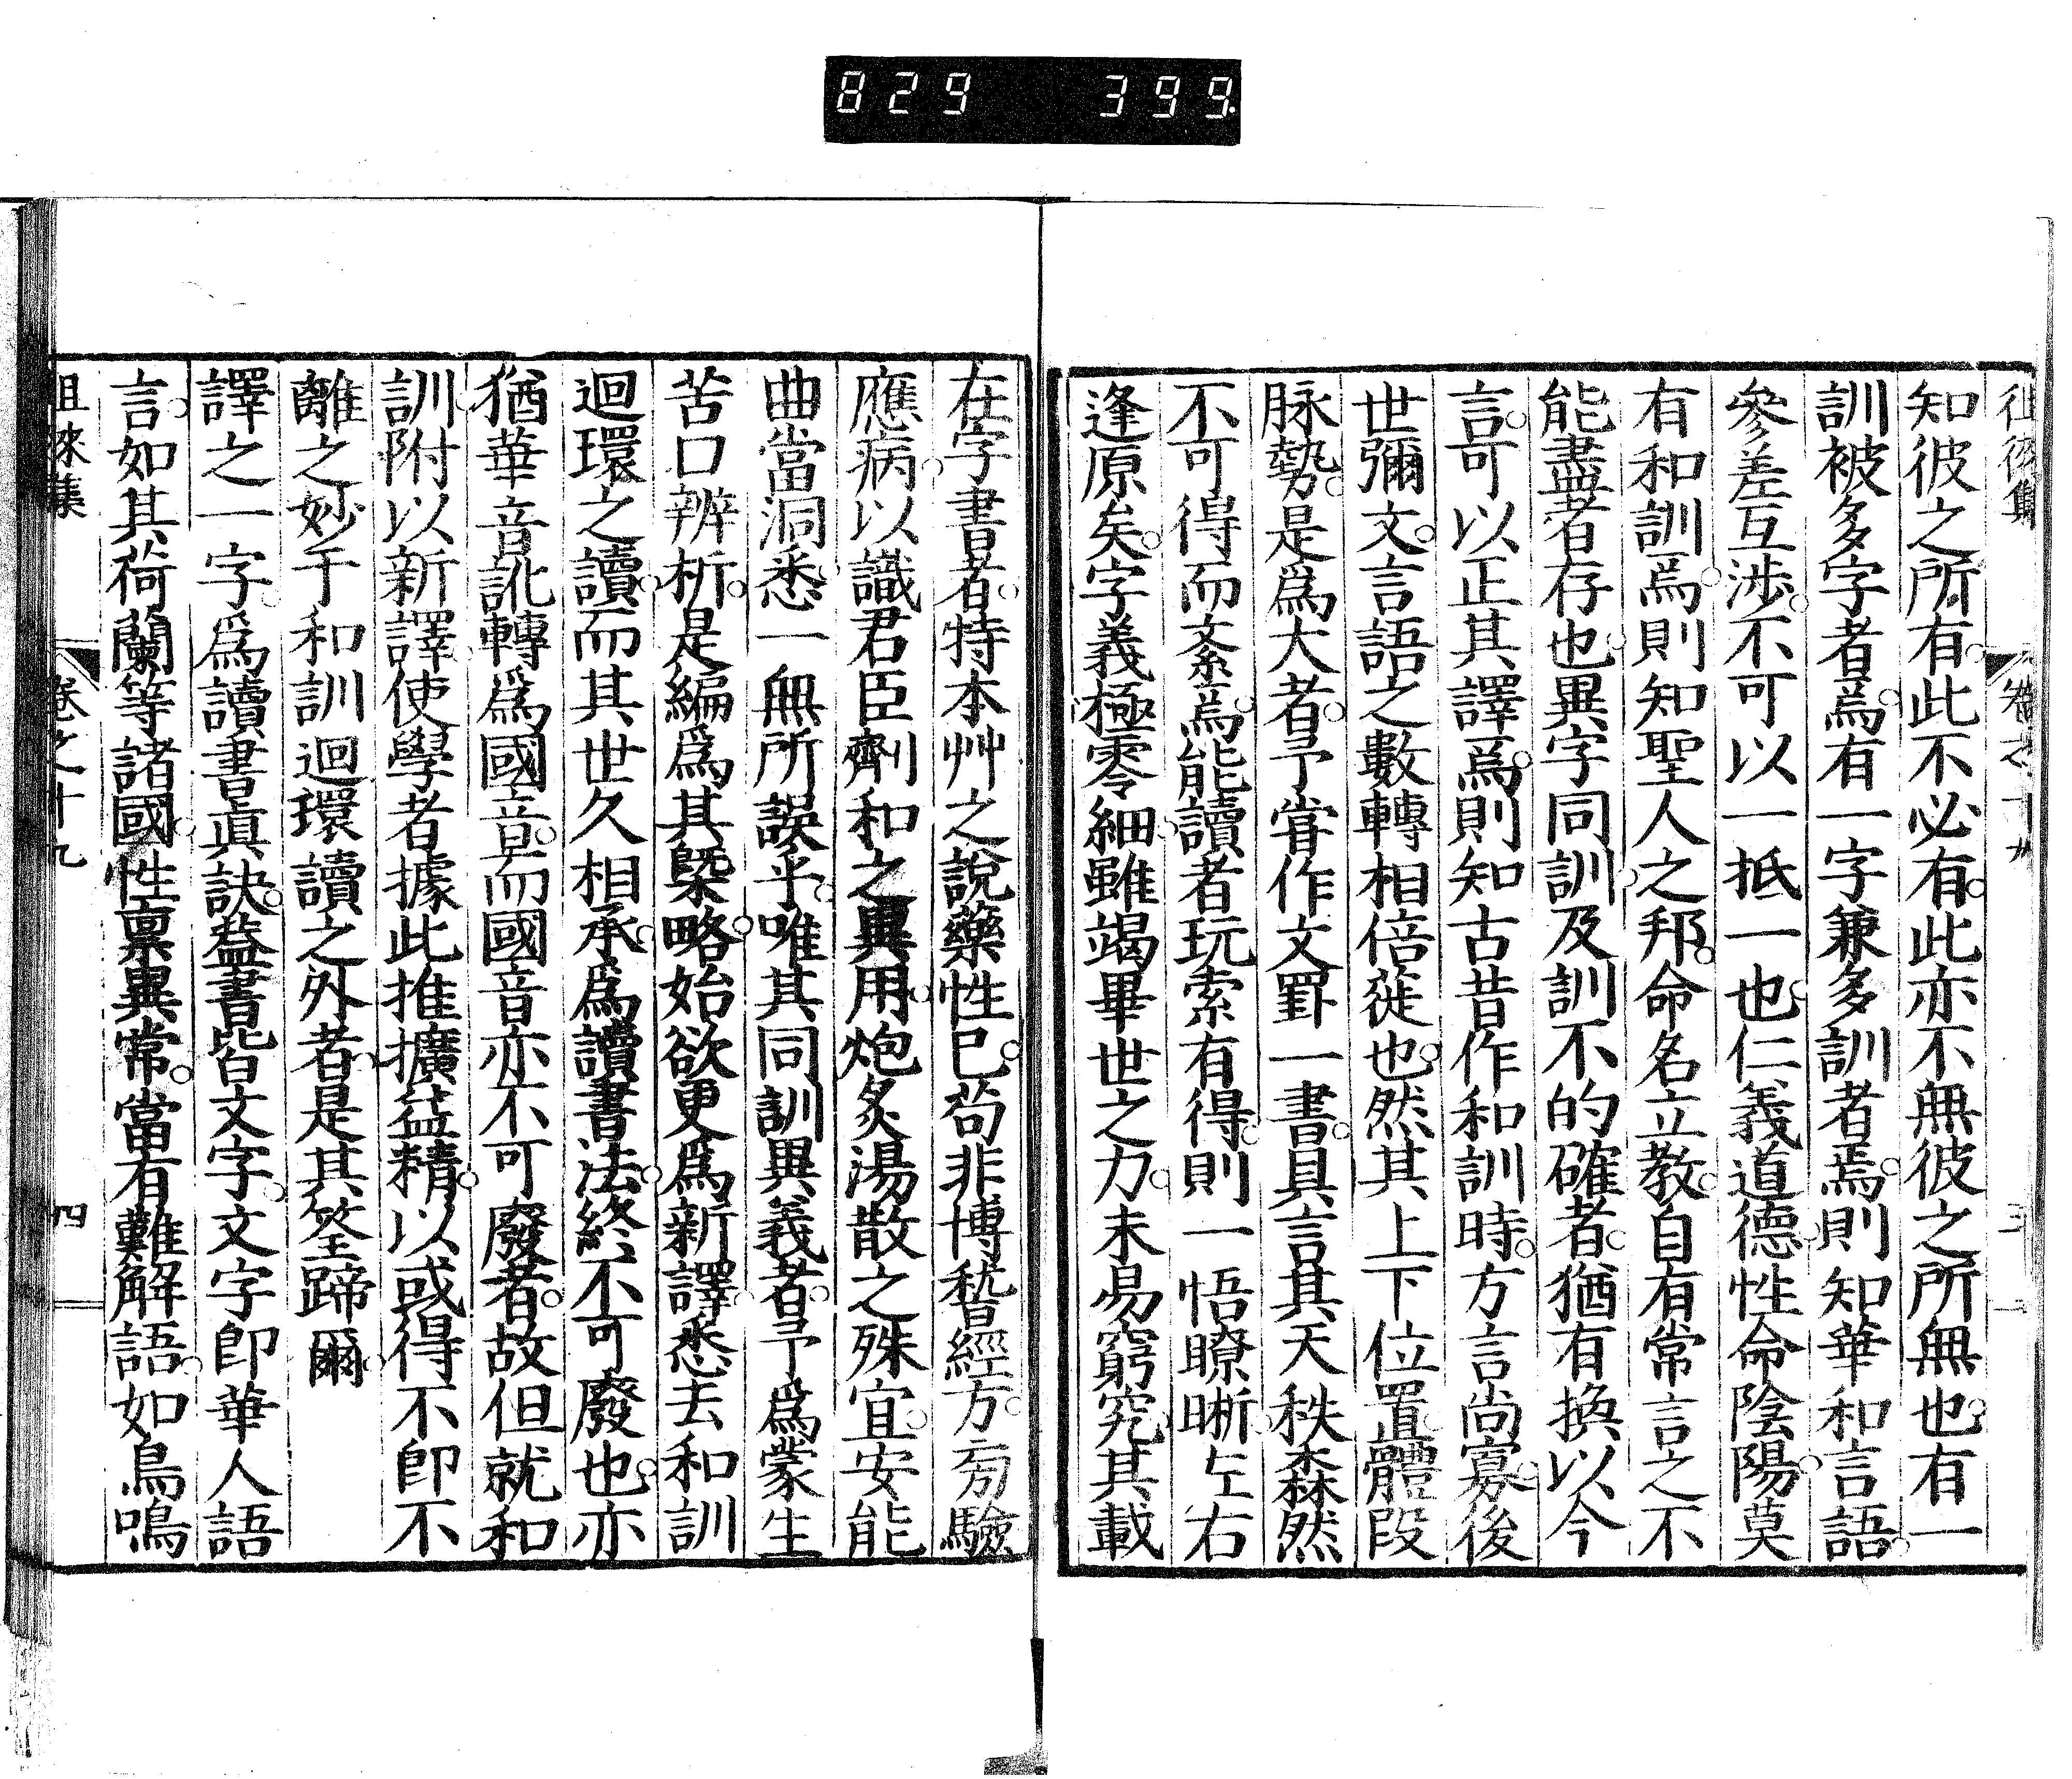 829 399
徂徠集 卷之十九 三
知彼之所有此不必有此亦不無彼之所無也有一
訓被多字者焉有一字兼多訓者焉則知華和言語
參差互涉不可以一抵一也仁義道德性命陰陽莫
有和訓焉則知聖人之邦命名立教自有常言之不
能盡者存也異字同訓及訓不的確者猶有換以今
言可以正其譯焉則知古昔作和訓時方言尚寡後
世彌文言語之數轉相倍蓰也然其上下位置體段
脉勢是爲大者予嘗作文罫一書具言其天秩森然
不可得而紊焉能讀者玩索有得則一悟瞭晰左右
逢原矣字義極零細雖竭畢世之力未易窮究其載
在字書者特本艸之說藥性已苟非博稽經方方驗
應病以識君臣劑和之異用炮炙湯散之殊宜安能
曲當洞悉一無所誤乎唯其同訓異義者予爲蒙生
苦口辨析是編爲其槩略始欲更爲新譯悉去和訓
迴環之讀而其世久相承爲讀書法終不可廢也亦
猶華音訛轉爲國音而國音亦不可廢者故但就和
訓附以新譯使學者據此推擴益精以或得不卽不
離之妙于和訓迴環讀之外者是其筌蹄爾
譯之一字爲讀書眞訣葢書皆文字文字卽華人語
言如其荷蘭等諸國性禀異常當有難解語如鳥鳴
徂徠集 卷之十九 四